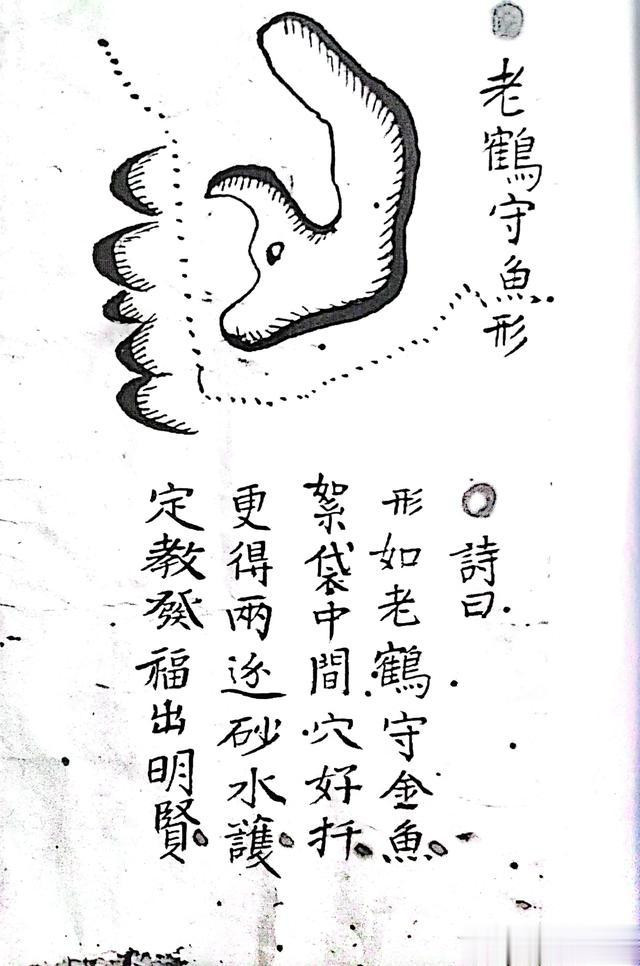 老鶴守魚形
詩曰
形如老鶴守金魚
絮袋中間穴好扦
更得兩迯砂水護
定教發福出明賢